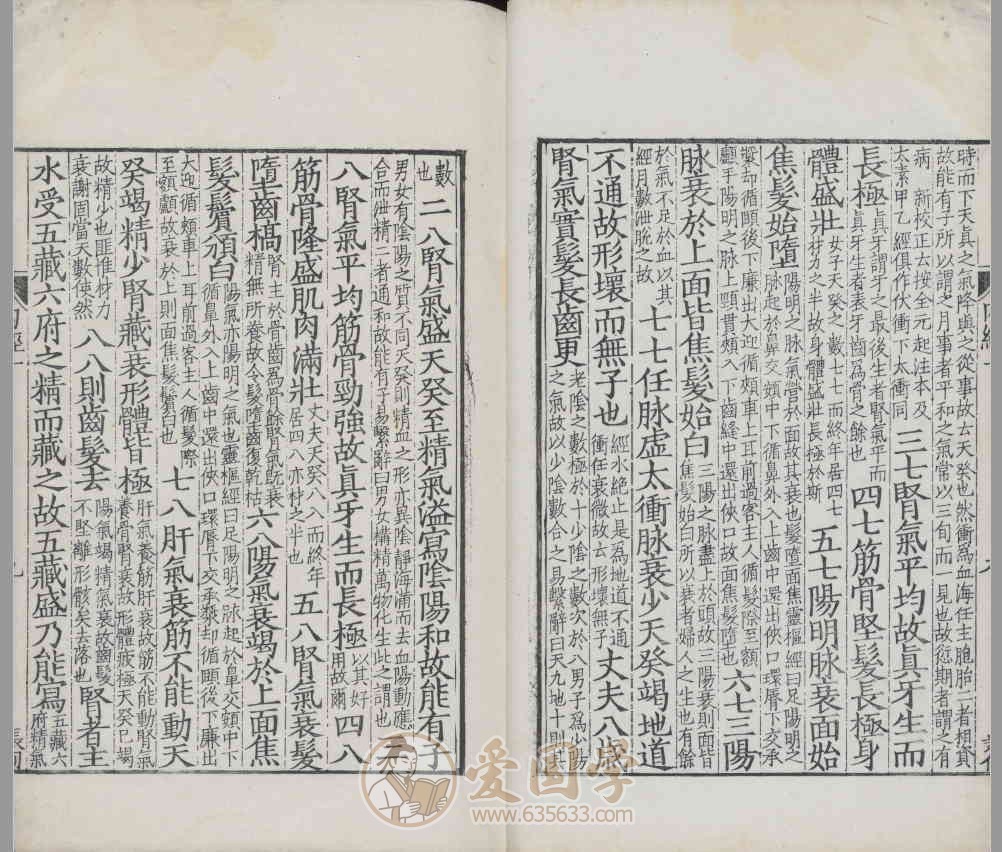 時而下天真之氣降與之從事故云天癸也然衝為血海任主胞胎二者相資
故能有子所以謂之月事者平和之氣常以三旬而一見也故愆期者謂之有
病　新校正云按全元起注本及
太素甲乙經俱作伏衝下太衝同
三七腎氣平均故真牙生而
長極
真牙謂牙之最後生者腎氣平而
真牙生者表牙齒為骨之餘也
四七筋骨堅髮長極身
體盛壯
女子天癸之數七七而終年居四七
材力之半故身體盛壯長極於斯
五七陽明脉衰面始
焦髮始墮
陽明之脉氣營於面故其衰也髮墮面焦靈樞經曰足陽明之
脉起於鼻交頞中下循鼻外入上齒中還出俠口環脣下交承
漿却循頤後下廉出大迎循頰車上耳前過客主人循髮際至額
顱手陽明之脉上頸貫頰入下齒縫中還出俠口故面焦髮墮也
六七三陽
脉衰於上面皆焦髮始白
三陽之脉盡上於頭故三陽衰則面皆
焦髮始白所以衰者婦人之生也有餘
於氣不足於血以其
經月數泄脫之故
七七任脉虛太衝脉衰少天癸竭地道
不通故形壞而無子也
經水絶止是為地道不通
衝任衰微故云形壞無子
丈夫八歲
腎氣實髮長齒更
老陰之數極於十少陰之數次於八男子為少陽
之氣故以少陰數合之易繫辭曰天九地十則其
數
也
二八腎氣盛天癸至精氣溢寫陰陽和故能有子
男女有陰陽之質不同天癸則精血之形亦異陰靜海滿而去血陽動應
合而泄精二者通和故能有子易繫辭曰男女構精萬物化生此之謂也
三
八腎氣平均筋骨勁強故真牙生而長極
以其好
用故爾
四八
筋骨隆盛肌肉滿壯
丈夫天癸八八而終年
居四八亦材之半也
五八腎氣衰髮
墮齒槁
腎主於骨齒為骨餘腎氣既衰
精無所養故令髮墮齒復乾枯
六八陽氣衰竭於上面焦
髮鬢頒白
陽氣亦陽明之氣也靈樞經曰足陽明之脉起於鼻交頞中下
循鼻外入上齒中還出俠口環脣下交承漿却循頤後下廉出
大迎循頰車上耳前過客主人循髮際
至額顱故衰於上則面焦髮鬢白也
七八肝氣衰筋不能動天
癸竭精少腎藏衰形體皆極
肝氣養筋肝衰故筋不能動腎氣
養骨腎衰故形體疲極天癸已竭
故精少也匪惟材力
衰謝固當天數使然
八八則齒髮去
陽氣竭精氣衰故齒髮
不堅離形骸矣去落也
腎者主
水受五藏六府之精而藏之故五藏盛乃能寫
五藏六
府精氣
爱国学
www.635633.com